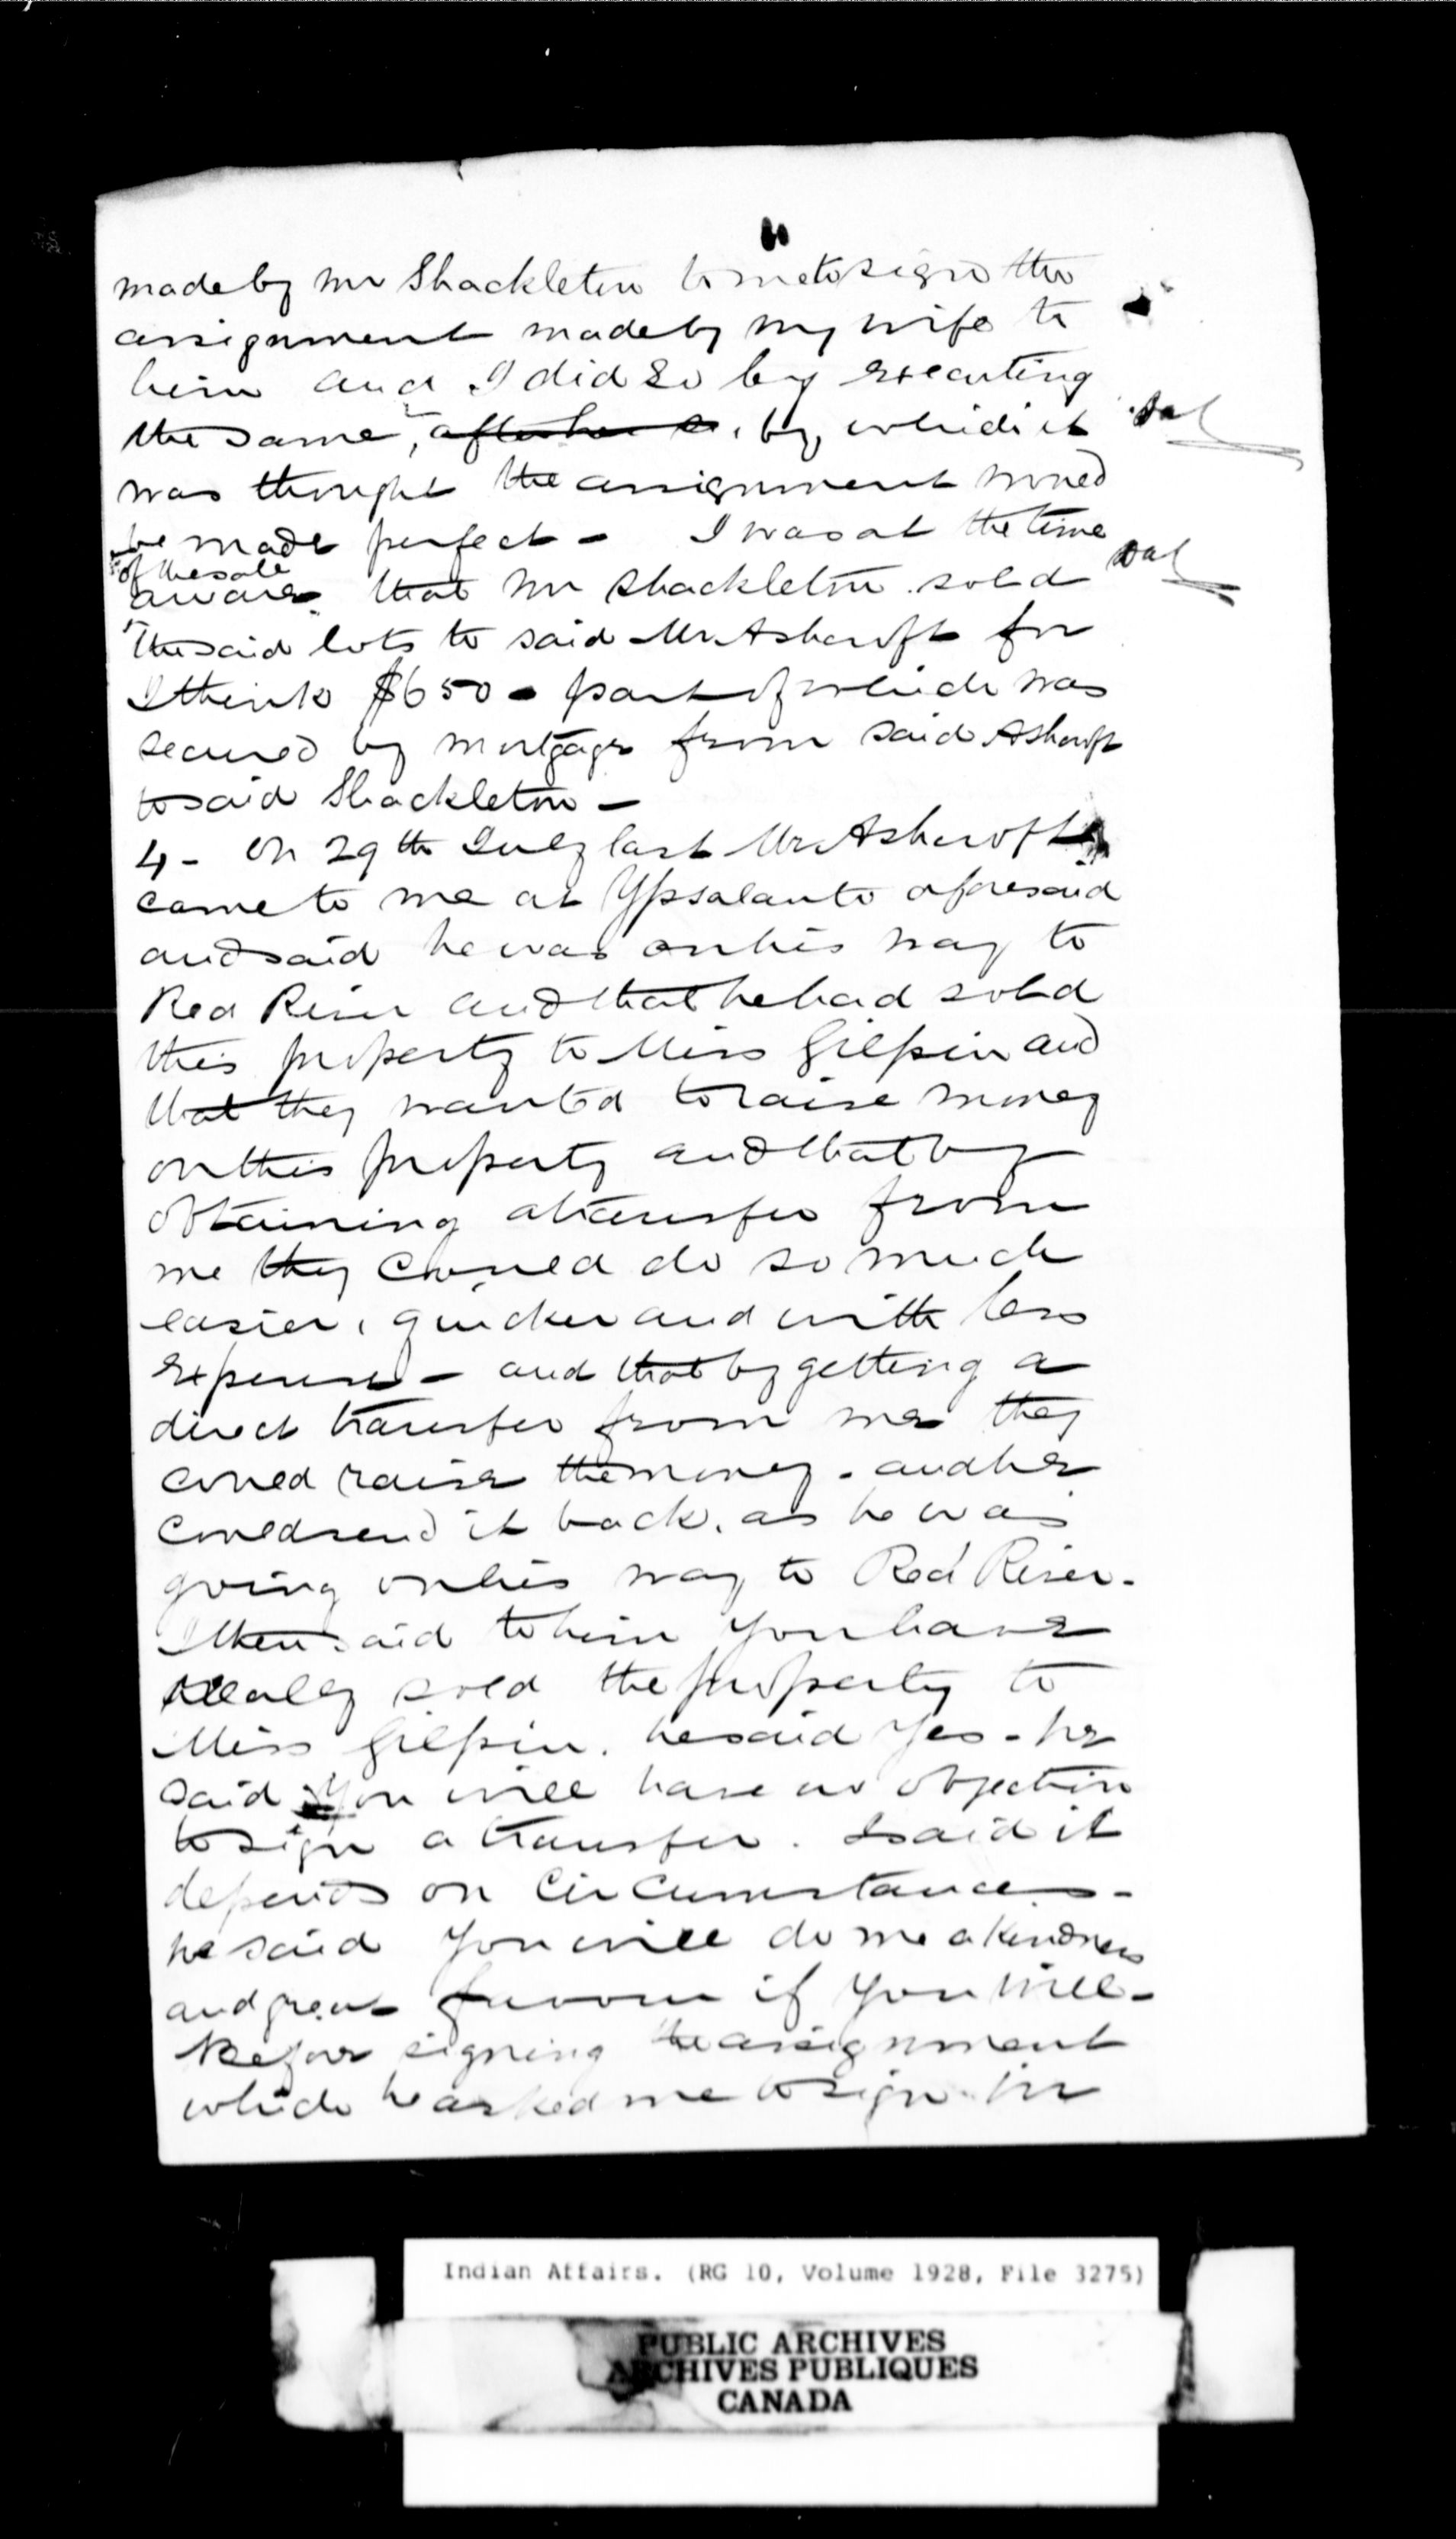 made by Mr Shackleton to me to sign the
assignment made by my wife to
him and I did so by executing
the same, by which it
was thought the assignment would
be made perfect - I was at the time
of the sale
aware that Mr Shackleton sold
the said lots to said Mr Ashcroft for
I think $650 - part of which was
secured by mortgage from said Ashcroft
to said Shackleton -
4 - On 29th July last Mr Ashcroft
came to me at Ypsalanto aforesaid
and said he was on his way to
Red River and that he had sold
this property to Miss Gilpin and
that they wanted to raise money
on this property and that by
obtaining a transfer from
me they could do so much
easier, quicker and with less
expense - and that by getting a
direct transfer from me they
could raise the money - and he
could send it back, as he was
going on his way to Red River -
I then said to him you have
really sold the property to
Miss Gilpin. he said Yes - he
said you will have no objection
to sign a transfer. I said it
depends on circumstances -
he said you will do me a kindness
and great favour if you will -
Before signing the assignment
which he asked me to sign in
Indian Affairs. (RG 10, Volume 1928, File 3275)
PUBLIC ARCHIVES
ARCHIVES PUBLIQUES
CANADA